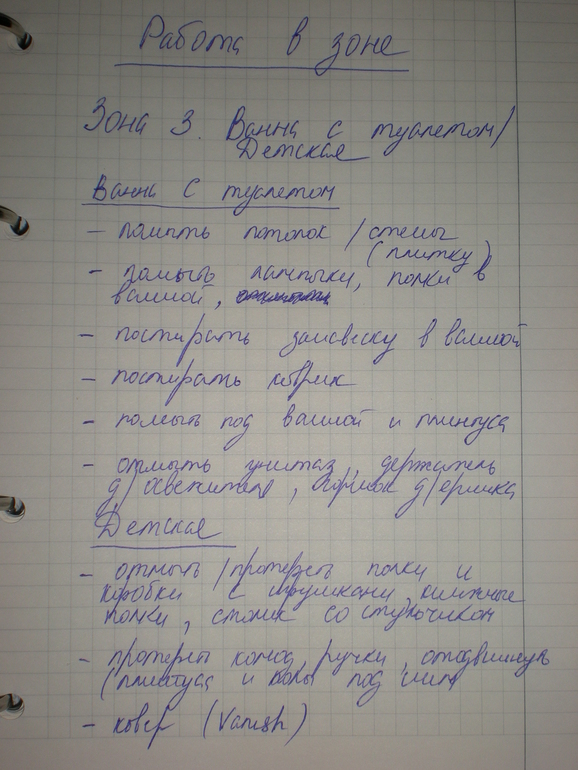 Работа в зоне
Зона 3. Ванна с туалетом/
Детская
Ванна с туалетом
- помыть потолок / стены
(плитку)
- помыть лампочки, полки в
ванной,
- постирать занавеску в ванной
- постирать коврик
- помыть под ванной и плинтуса
- отмыть унитаз, держатель
д/освежителя, горшок д/ершика
Детская
- отмыть / протереть полки и
коробки с игрушками, книжные
полки, столик со стульчиком
- протереть комод, ручки, отодвинуть
(плинтуса и полы под ним)
- ковер (Vanish)